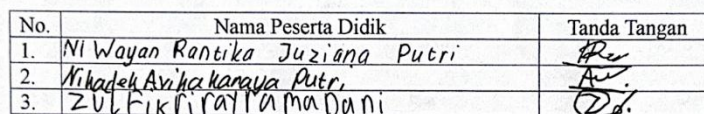 No. Nama Peserta Didik Tanda Tangan
1. Ni Wayan Rantika Juziana Putri
2. Nikadek Avika Karaya Putri
3. Zul Fikri rayramadani